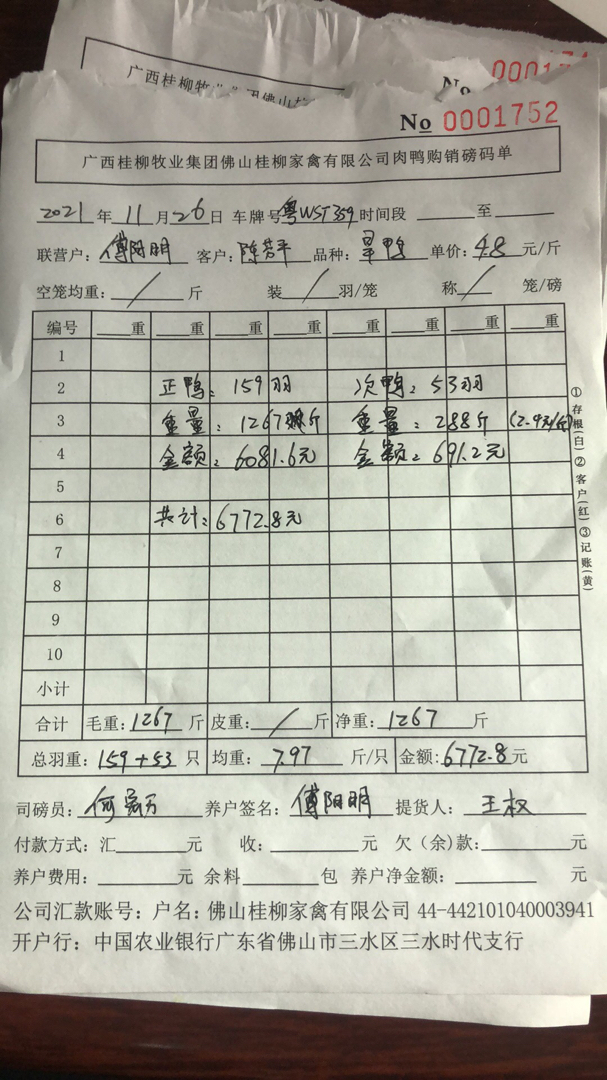 广西桂柳牧
№ 0001752
广西桂柳牧业集团佛山桂柳家禽有限公司肉鸭购销磅码单
2021年11月26日 车牌号粤WST359时间段 至
联营户：傅阳明 客户：陈芳平 品种：旱鸭 单价：4.8元/斤
空笼均重：/斤 装/羽/笼 称/笼/磅
编号 重 重 重 重 重 重 重 重
1
2 正鸭：159羽 次鸭：53羽
3 重量：1267斤 重量：288斤 (2.4元/斤)
4 金额：6081.6元 金额：691.2元
5
6 共计：6772.8元
7
8
9
10
小计
合计 毛重：1267斤 皮重：/斤 净重：1267斤
总羽重：159+53只 均重：7.97斤/只 金额：6772.8元
司磅员：何 养户签名：傅阳明 提货人：王权
付款方式：汇 元 收： 元 欠（余）款： 元
养户费用： 元 余料 包 养户净金额： 元
公司汇款账号：户名：佛山桂柳家禽有限公司 44-442101040003941
开户行：中国农业银行广东省佛山市三水区三水时代支行
①存根(白)②客户(红)③记账(黄)